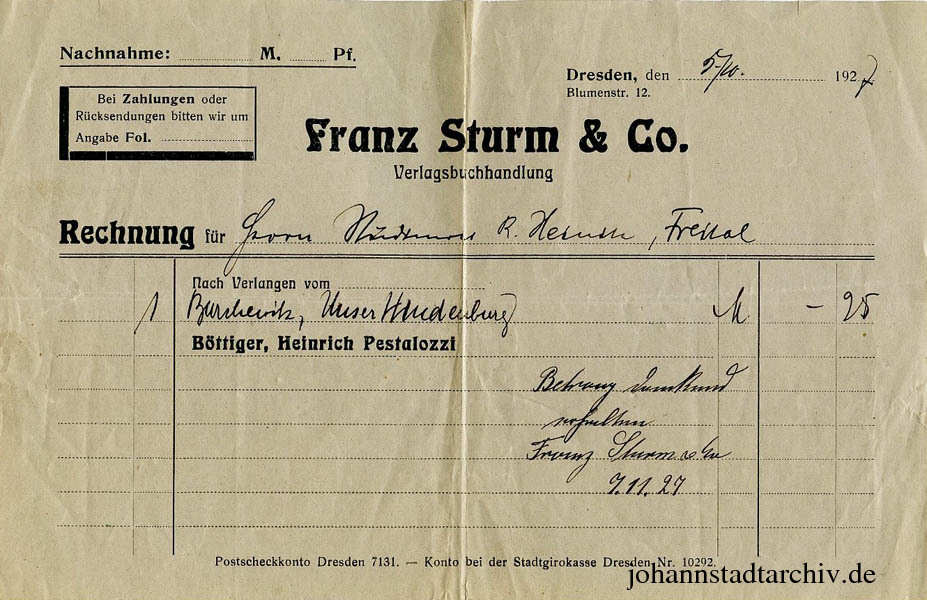 Nachnahme: M. Pf.
Dresden, den 5/10. 1927
Blumenstr. 12.
Bei Zahlungen oder
Rücksendungen bitten wir um
Angabe Fol.
Franz Sturm & Co.
Verlagsbuchhandlung
Rechnung für Herrn R. Freital
Nach Verlangen vom
1 Unser Hindenburg M. – 25
Böttiger, Heinrich Pestalozzi
Betrag dankend
erhalten
Franz Sturm & Co
7.11.27
Postscheckkonto Dresden 7131. — Konto bei der Stadtgirokasse Dresden Nr. 10292.
johannstadtarchiv.de